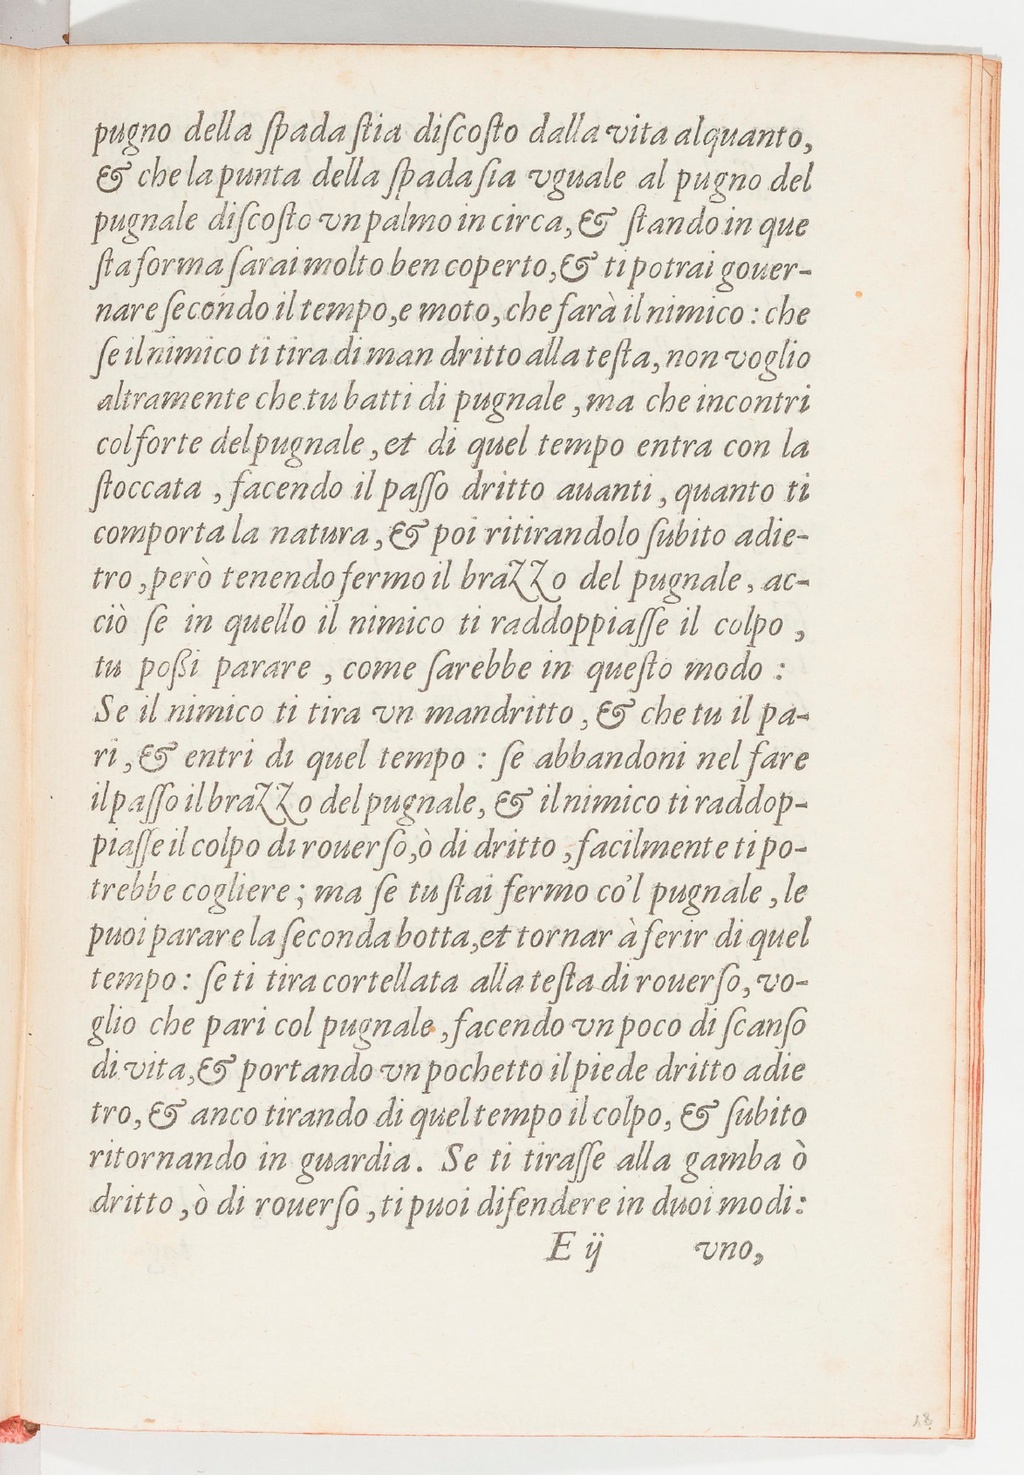 pugno della ſpada ſtia diſcoſto dalla vita alquanto,
& che la punta della ſpada ſia vguale al pugno del
pugnale diſcoſto vn palmo in circa, & ſtando in que
ſta forma ſarai molto ben coperto, & ti potrai gouer-
nare ſecondo il tempo, e moto, che farà il nimico : che
ſe il nimico ti tira di man dritto alla teſta, non voglio
altramente che tu batti di pugnale , ma che incontri
col forte del pugnale , et di quel tempo entra con la
ſtoccata , facendo il paſſo dritto auanti , quanto ti
comporta la natura , & poi ritirandolo ſubito adie-
tro , però tenendo fermo il brazzo del pugnale , ac-
ciò ſe in quello il nimico ti raddoppiaſſe il colpo ,
tu poßi parare , come ſarebbe in queſto modo :
Se il nimico ti tira vn mandritto , & che tu il pa-
ri , & entri di quel tempo : ſe abbandoni nel fare
il paſſo il brazzo del pugnale, & il nimico ti raddop-
piaſſe il colpo di rouerſo, ò di dritto , facilmente ti po-
trebbe cogliere ; ma ſe tu ſtai fermo co'l pugnale , le
puoi parare la ſeconda botta, et tornar à ferir di quel
tempo : ſe ti tira cortellata alla teſta di rouerſo, vo-
glio che pari col pugnale , facendo vn poco di ſcanſo
di vita, & portando vn pochetto il piede dritto adie
tro, & anco tirando di quel tempo il colpo, & ſubito
ritornando in guardia. Se ti tiraſſe alla gamba ò
dritto , ò di rouerſo , ti puoi difendere in duoi modi :
E ij vno,
18